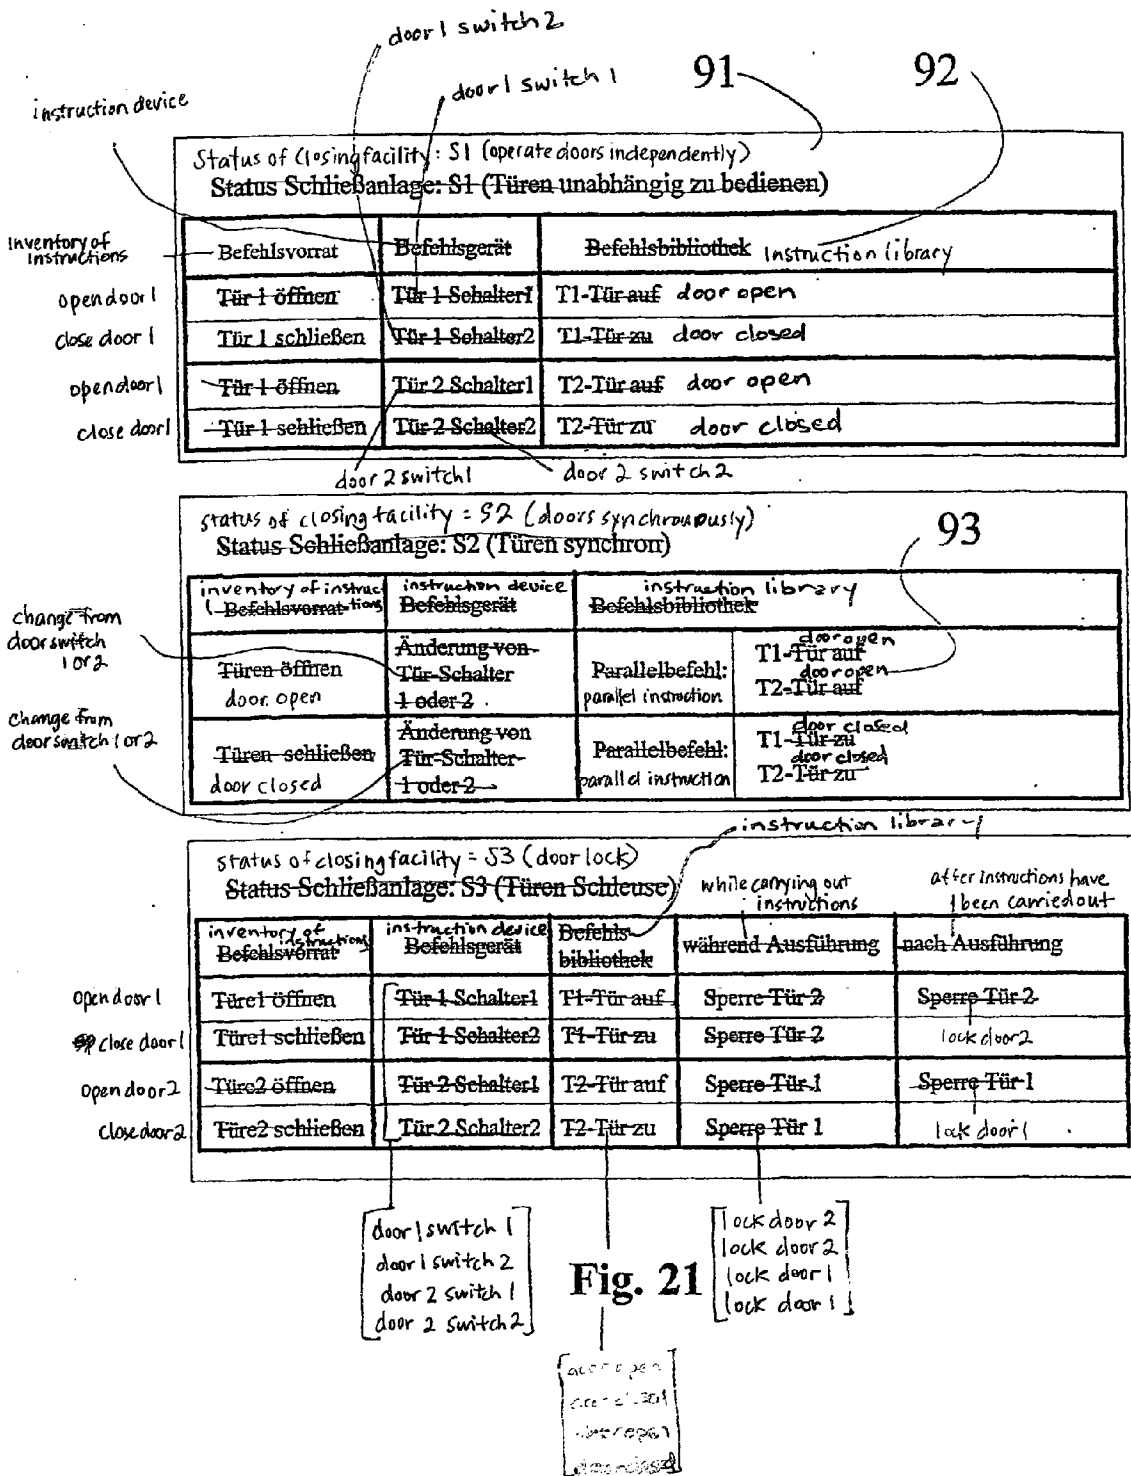 door 1 switch 2
door 1 switch 1
91
92
instruction device
Status of Closing facility: S1 (operate doors independently)
Status Schließanlage: S1 (Türen unabhängig zu bedienen)
Inventory of Instructions
Befehlsvorrat Befehlsgerät Befehlsbibliothek Instruction library
open door 1 Tür 1 öffnen Tür 1 Schalter1 T1-Tür auf door open
close door 1 Tür 1 schließen Tür 1 Schalter2 T1-Tür zu door closed
open door 1 Tür 1 öffnen Tür 2 Schalter1 T2-Tür auf door open
close door 1 Tür 1 schließen Tür 2 Schalter2 T2-Tür zu door closed
door 2 switch 1
door 2 switch 2
status of closing facility = S2 (doors synchronously)
Status Schließanlage: S2 (Türen synchron)
93
inventory of instructions instruction device instruction library
Befehlsvorrat Befehlsgerät Befehlsbibliothek
change from door switch 1 or 2
Türen öffnen
door open
Änderung von
Tür-Schalter
1 oder 2
Parallelbefehl:
parallel instruction
door open
T1-Tür auf
door open
T2-Tür auf
Change from door switch 1 or 2
Türen schließen
door closed
Änderung von
Tür-Schalter
1 oder 2
Parallelbefehl:
parallel instruction
door closed
T1-Tür zu
door closed
T2-Tür zu
instruction library
status of closing facility = S3 (door lock)
Status Schließanlage: S3 (Türen Schleuse)
while carrying out instructions
after instructions have been carried out
inventory of instructions instruction device
Befehlsvorrat Befehlsgerät Befehls-
bibliothek während Ausführung nach Ausführung
open door 1 Türe1 öffnen Tür 1 Schalter1 T1-Tür auf Sperre Tür 2 Sperre Tür 2
close door 1 Türe1 schließen Tür 1 Schalter2 T1-Tür zu Sperre Tür 2 lock door 2
open door 2 Türe2 öffnen Tür 2 Schalter1 T2-Tür auf Sperre Tür 1 Sperre Tür 1
close door 2 Türe2 schließen Tür 2 Schalter2 T2-Tür zu Sperre Tür 1 lock door 1
door 1 switch 1
door 1 switch 2
door 2 switch 1
door 2 switch 2
Fig. 21
lock door 2
lock door 2
lock door 1
lock door 1
door open
door closed
door open
door closed